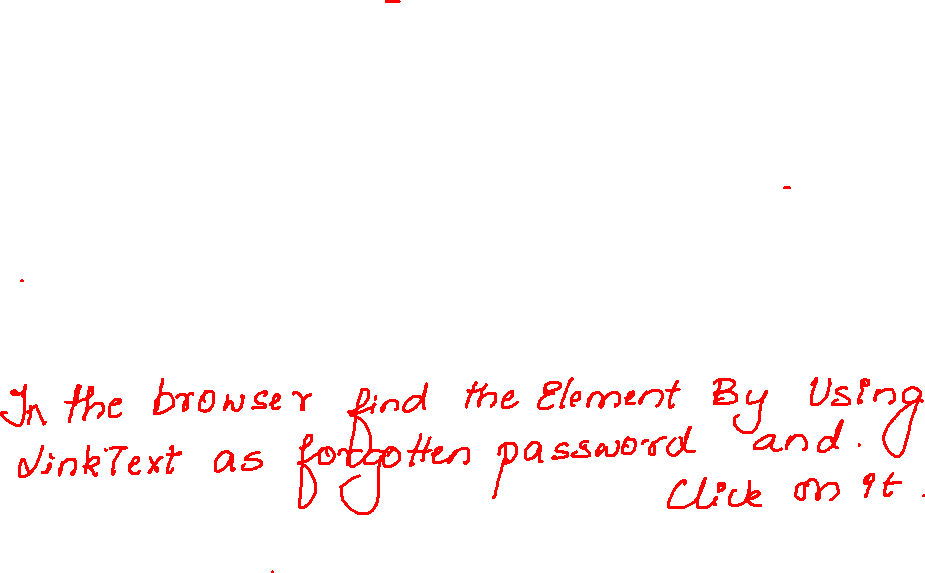 In the browser find the Element By Using
LinkText as forgotten password and.
Click on it.